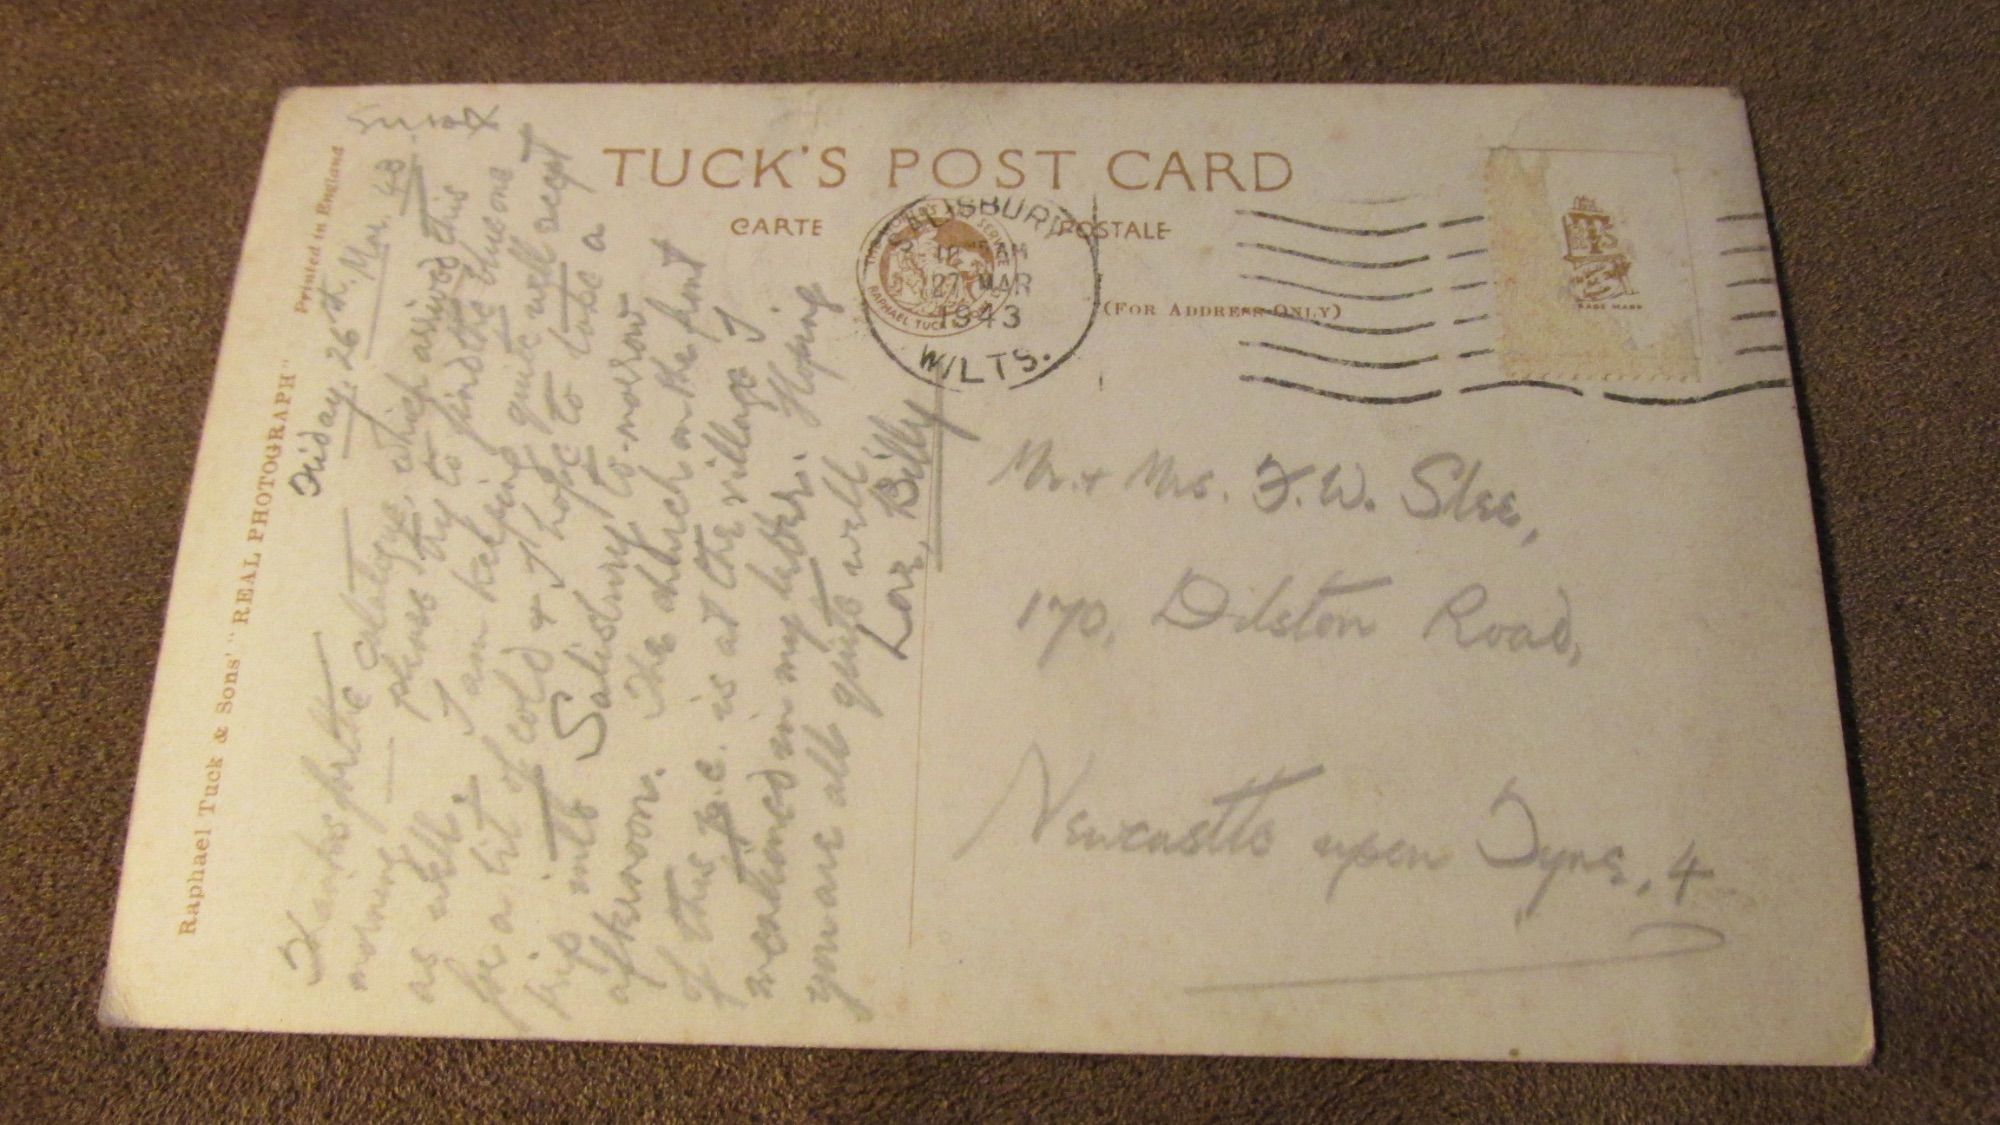 TUCK'S POST CARD
CARTE POSTALE
(FOR ADDRESS ONLY)
SALISBURY
AM
27 MAR
1943
WILTS.
RAPHAEL TUCK
TRADE MARK
Printed in England
Raphael Tuck & Sons' "REAL PHOTOGRAPH"
Friday, 26th. Mar. 43
Thanks for the catalogue, which arrived this
morning please try to find the thus one
as well. I am keeping quite well except
for a bit of cold & I hope to take a
trip into Salisbury to-morrow
afternoon. The church on the front
of this p.c. is at the village I
mentioned in my letter. Hoping
you are all quite well,
Love, Billy
Mr. + Mrs. F. W. Slee,
170, Dilston Road,
Newcastle upon Tyne, 4